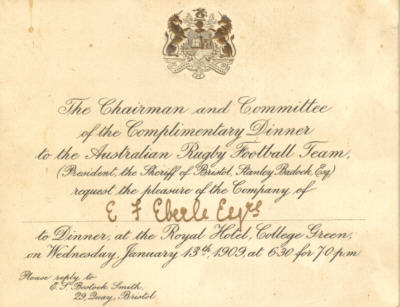 The Chairman and Committee
of the Complimentary Dinner
to the Australian Rugby Football Team,
(President, the Sheriff of Bristol, Stanley Badock, Esq)
request the pleasure of the Company of
E F Eberle Esqre
to Dinner, at the Royal Hotel, College Green,
on Wednesday, January 13th, 1909, at 6.30 for 7.0 p.m.
Please reply to
E. S. Bostock Smith,
29, Quay, Bristol.